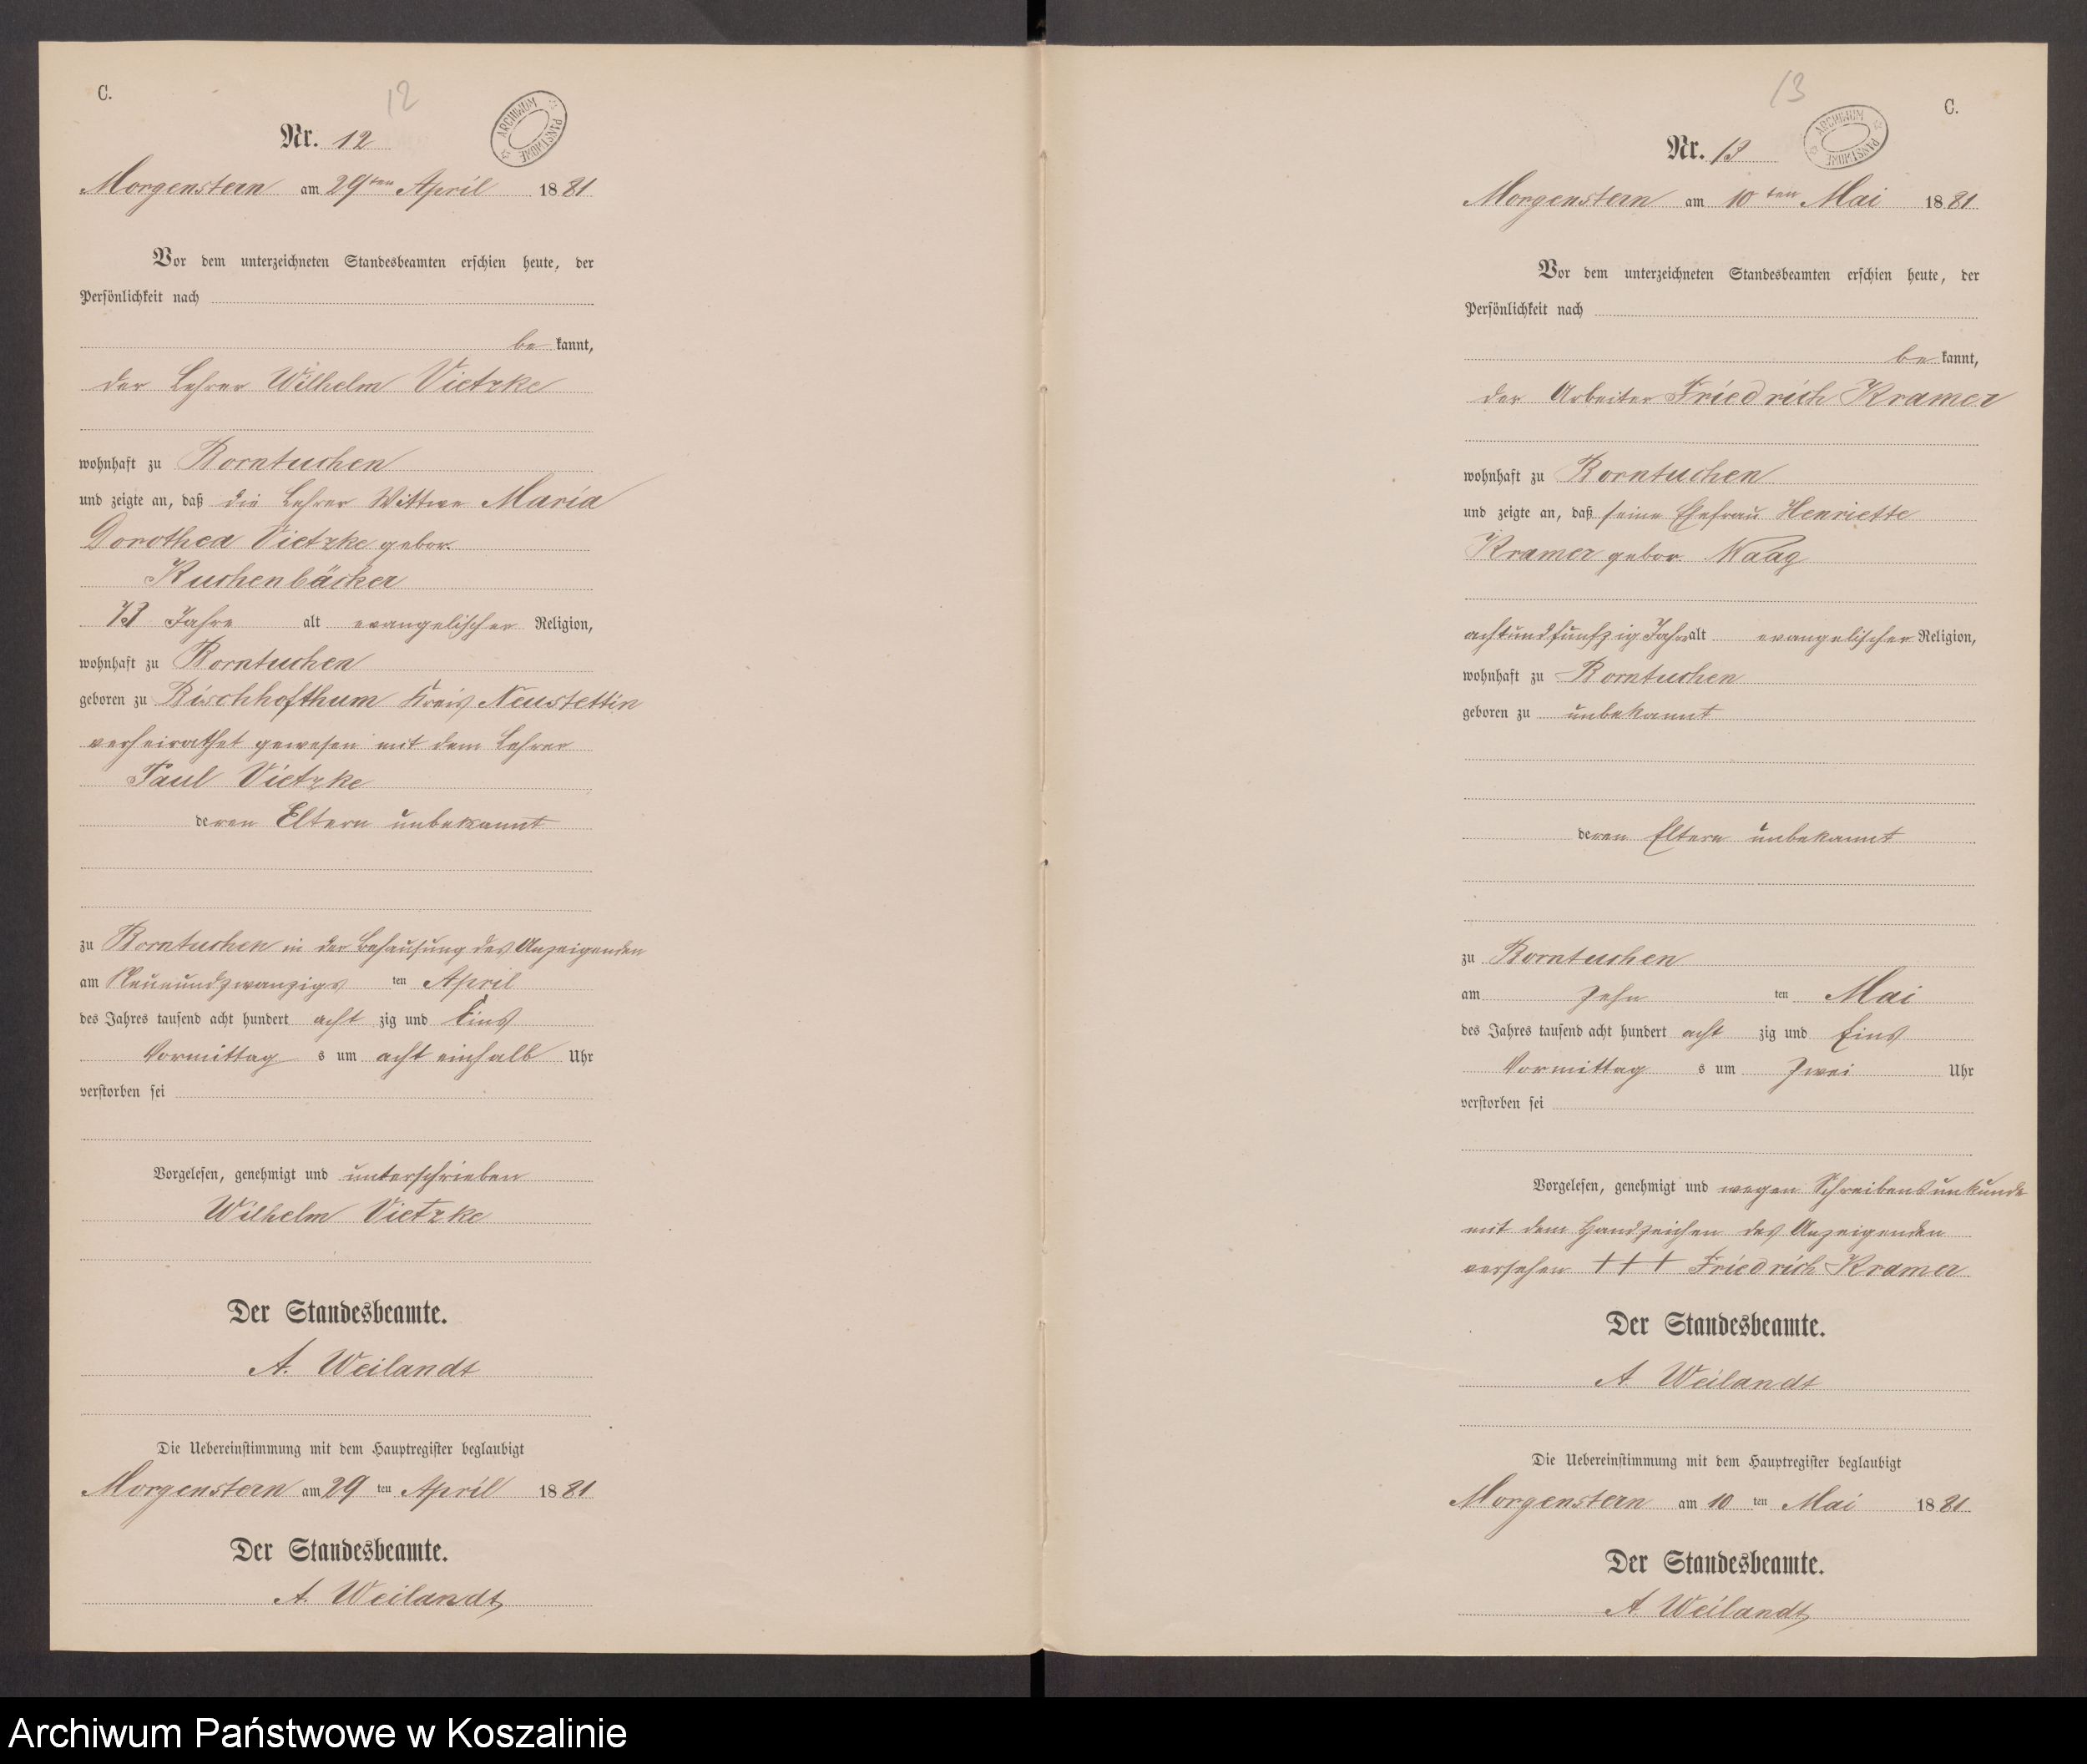 C.
12
Nr. 12
ARCHIWUM PAŃSTWOWE
Morgenstern am 29ten April 1881
Vor dem unterzeichneten Standesbeamten erschien heute, der
Persönlichkeit nach
be kannt,
der Lehrer Wilhelm Vietzke
wohnhaft zu Borntuchen
und zeigte an, daß die Lehrer Wittwe Maria
Dorothea Vietzke gebor.
Kuchenbäcker
73 Jahre alt evangelischer Religion,
wohnhaft zu Borntuchen
geboren zu Bischhofthum Kreis Neustettin
verheirathet gewesen mit dem Lehrer
Paul Vietzke
deren Eltern unbekannt
zu Borntuchen in der Behausung des Anzeigenden
am Neunundzwanzigs ten April
des Jahres tausend acht hundert acht zig und Eins
Vormittag s um acht einhalb Uhr
verstorben sei
Vorgelesen, genehmigt und unterschrieben
Wilhelm Vietzke
Der Standesbeamte.
A. Weilandt
Die Uebereinstimmung mit dem Hauptregister beglaubigt
Morgenstern am 29 ten April 1881
Der Standesbeamte.
A. Weilandt
13
C.
Nr. 13
ARCHIWUM PAŃSTWOWE
Morgenstern am 10ten Mai 1881
Vor dem unterzeichneten Standesbeamten erschien heute, der
Persönlichkeit nach
be kannt,
der Arbeiter Friedrich Kramer
wohnhaft zu Borntuchen
und zeigte an, daß seine Ehefrau Henriette
Kramer gebor. Naag
achtundfunfzig Jahr alt evangelischer Religion,
wohnhaft zu Borntuchen
geboren zu unbekannt
deren Eltern unbekannt
zu Borntuchen
am Zehn ten Mai
des Jahres tausend acht hundert acht zig und Eins
Vormittag s um Zwei Uhr
verstorben sei
Vorgelesen, genehmigt und wegen Schreibensunkunde
mit dem Handzeichen des Anzeigenden
versehen +++ Friedrich Kramer
Der Standesbeamte.
A Weilandt
Die Uebereinstimmung mit dem Hauptregister beglaubigt
Morgenstern am 10 ten Mai 1881
Der Standesbeamte.
A Weilandt
Archiwum Państwowe w Koszalinie